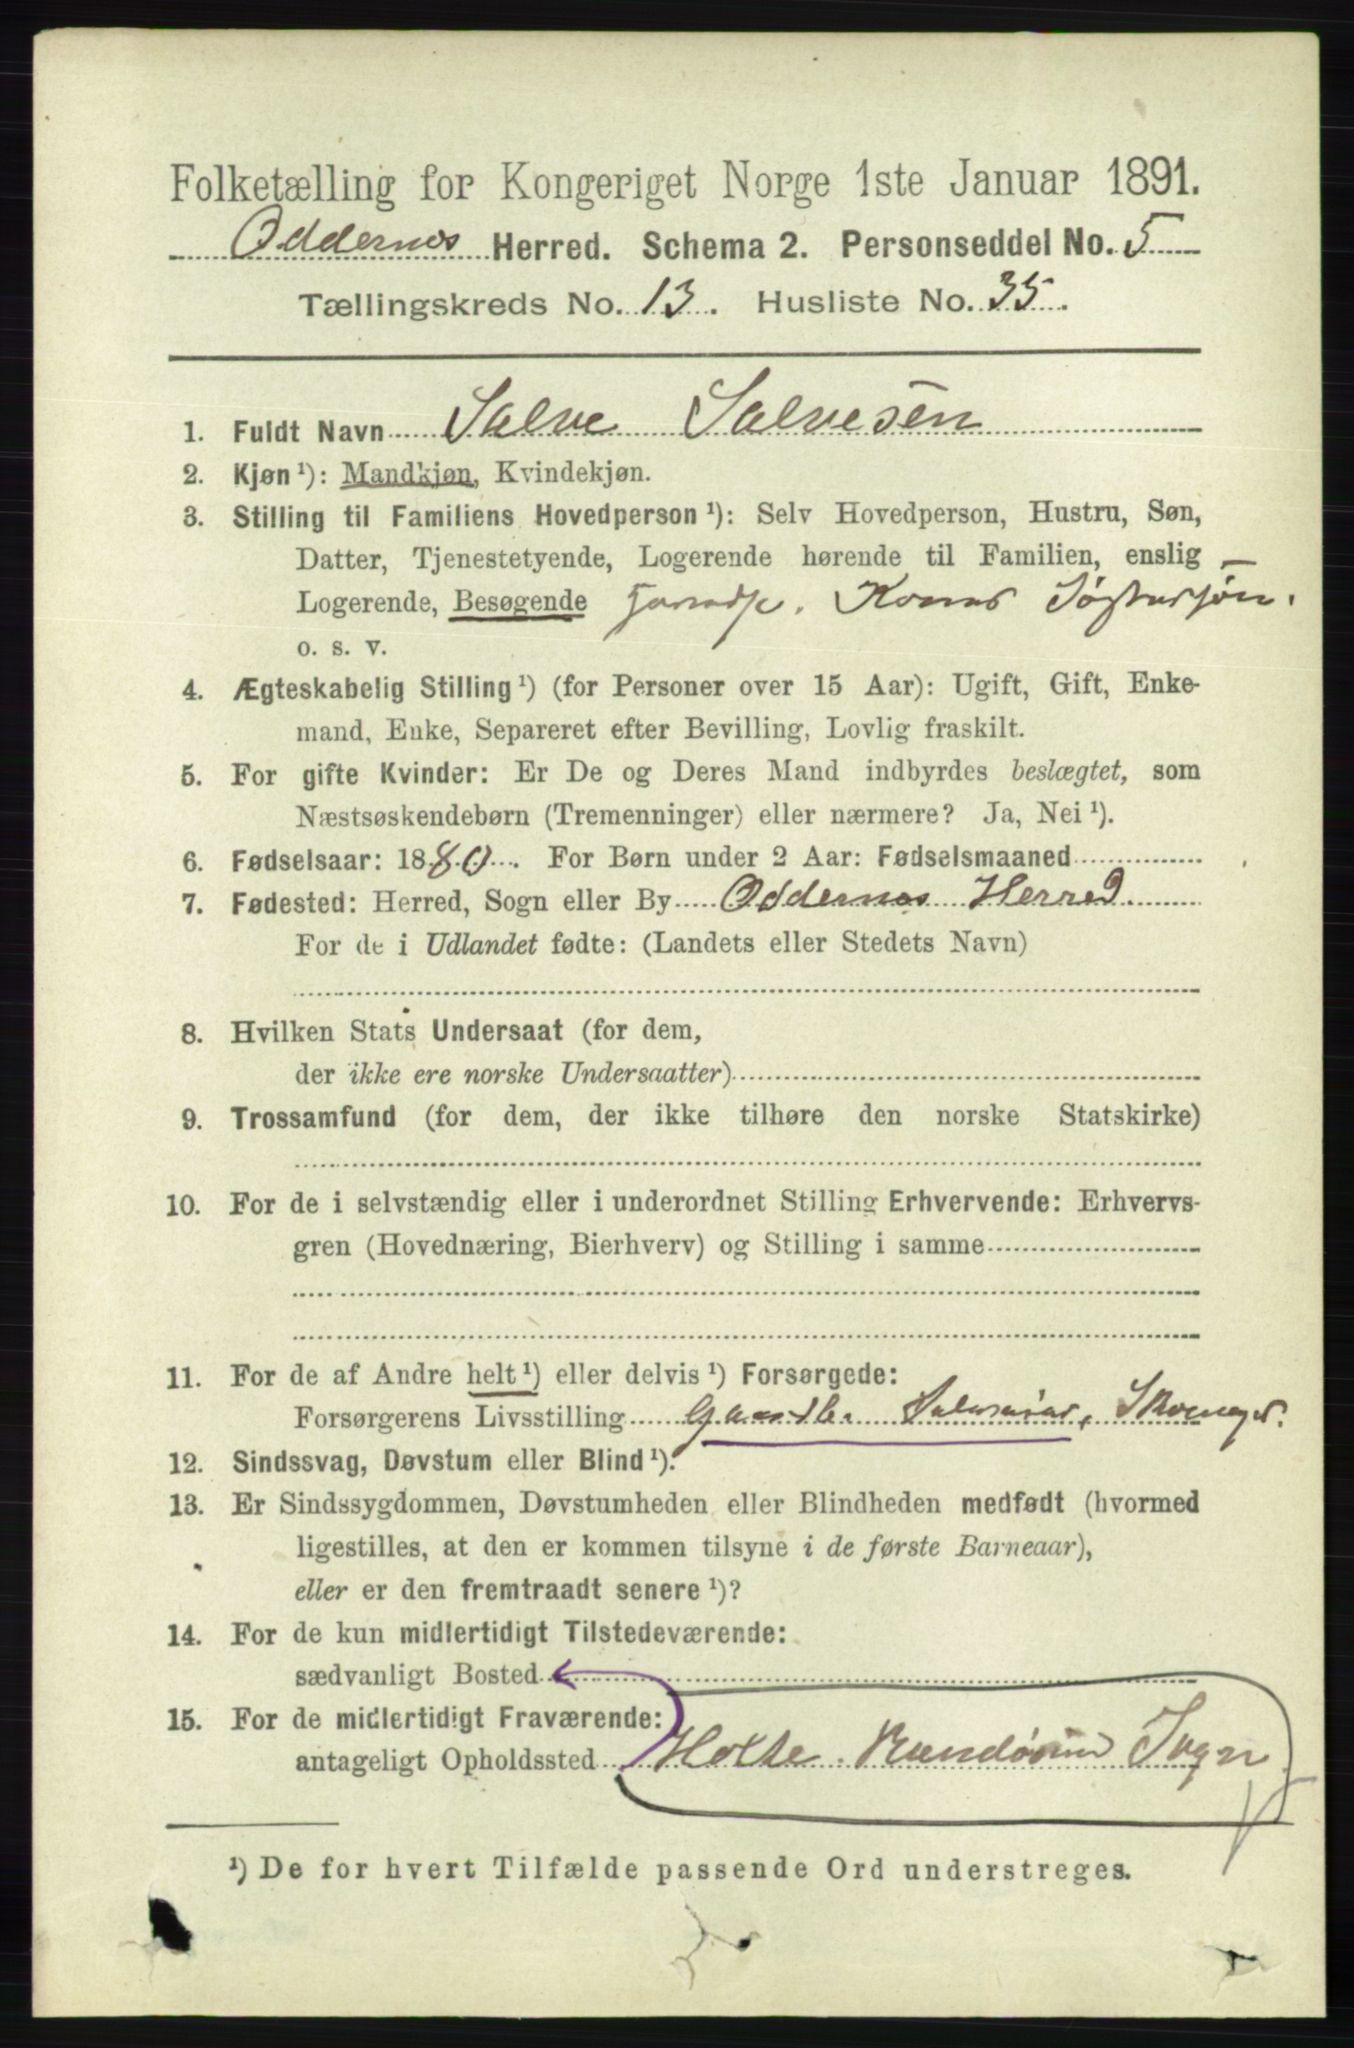 Folketælling for Kongeriget Norge 1ste Januar 1891.
Oddernes Herred. Schema 2. Personseddel No. 5
Tællingskreds No. 13. Husliste No. 35.
1. Fuldt Navn Salve Salvesen
2. Kjøn ¹): Mandkjøn, Kvindekjøn.
3. Stilling til Familiens Hovedperson ¹): Selv Hovedperson, Hustru, Søn,
Datter, Tjenestetyende, Logerende hørende til Familien, enslig
Logerende, Besøgende Kones Søstersøn.
o. s. v.
4. Ægteskabelig Stilling ¹) (for Personer over 15 Aar): Ugift, Gift, Enke-
mand, Enke, Separeret efter Bevilling, Lovlig fraskilt.
5. For gifte Kvinder: Er De og Deres Mand indbyrdes beslægtet, som
Næstsøskendebørn (Tremenninger) eller nærmere? Ja, Nei ¹).
6. Fødselsaar: 1880. For Børn under 2 Aar: Fødselsmaaned
7. Fødested: Herred, Sogn eller By Oddernes Herred.
For de i Udlandet fødte: (Landets eller Stedets Navn)
8. Hvilken Stats Undersaat (for dem,
der ikke ere norske Undersaatter)
9. Trossamfund (for dem, der ikke tilhøre den norske Statskirke)
10. For de i selvstændig eller i underordnet Stilling Erhvervende: Erhvervs-
gren (Hovednæring, Bierhverv) og Stilling i samme
11. For de af Andre helt ¹) eller delvis ¹) Forsørgede:
Forsørgerens Livsstilling
12. Sindssvag, Døvstum eller Blind ¹).
13. Er Sindssygdommen, Døvstumheden eller Blindheden medfødt (hvormed
ligestilles, at den er kommen tilsyne i de første Barneaar),
eller er den fremtraadt senere ¹)?
14. For de kun midlertidigt Tilstedeværende:
sædvanligt Bosted
15. For de midlertidigt Fraværende:
antageligt Opholdssted Holte Randøsund Sogn
¹) De for hvert Tilfælde passende Ord understreges.